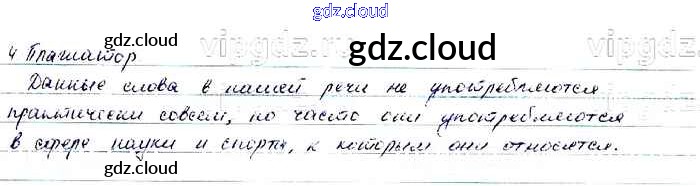 gdz.cloud
gdz.cloud vipgdz.ru gdz.cloud vipgdz
4 Плагиатор
Данные слова в нашей речи не употребляются
практически совсем, но часто они употребляются
gdz.cloud gdz.cloud
в сфере науки и спорта, к которым они относятся.
gdz.cloud